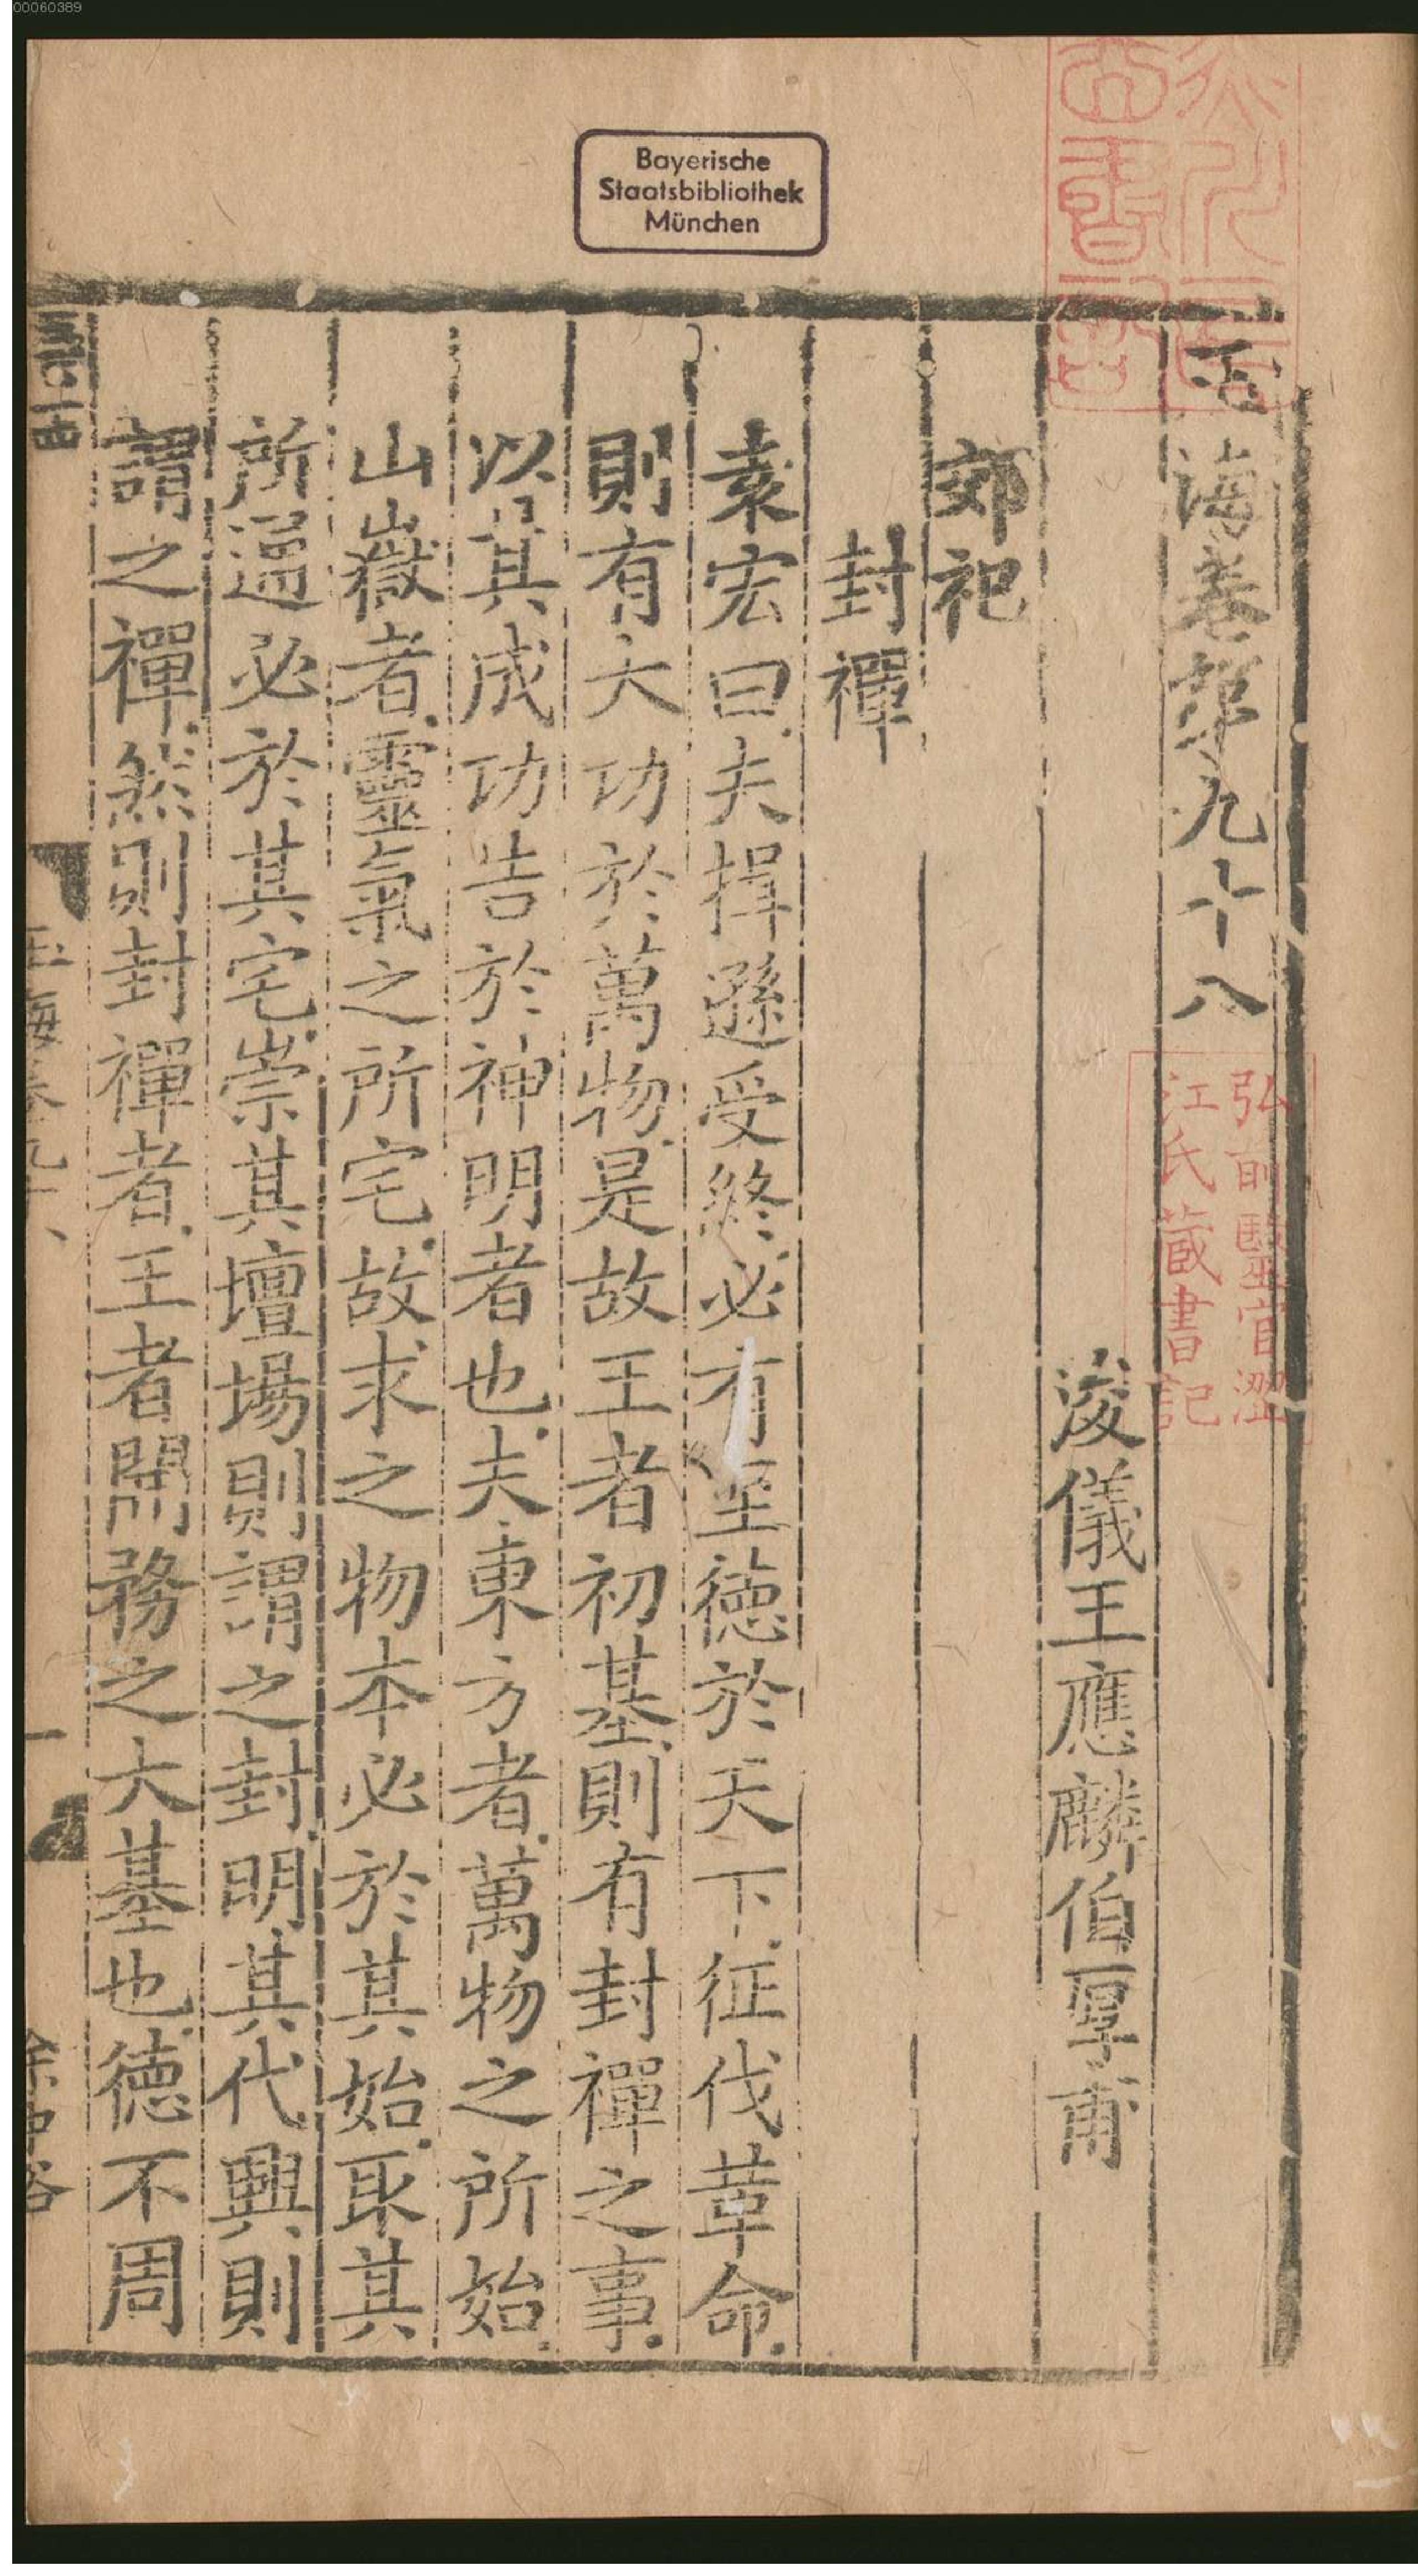 00060389
Bayerische
Staatsbibliothek
München
玉海卷第九十八
弘前醫官澀
江氏藏書記
浚儀王應麟伯厚甫
郊祀
封禪
袁宏曰夫揖遜受終必有至德於天下征伐革命
則有大功於萬物是故王者初基則有封禪之事
以其成功告於神明者也夫東方者萬物之所始
山嶽者靈氣之所宅故求之物本必於其始取其
所通必於其宅崇其壇場則謂之封明其代興則
謂之禪然則封禪者王者開務之大基也德不周
玉海卷九十八
一